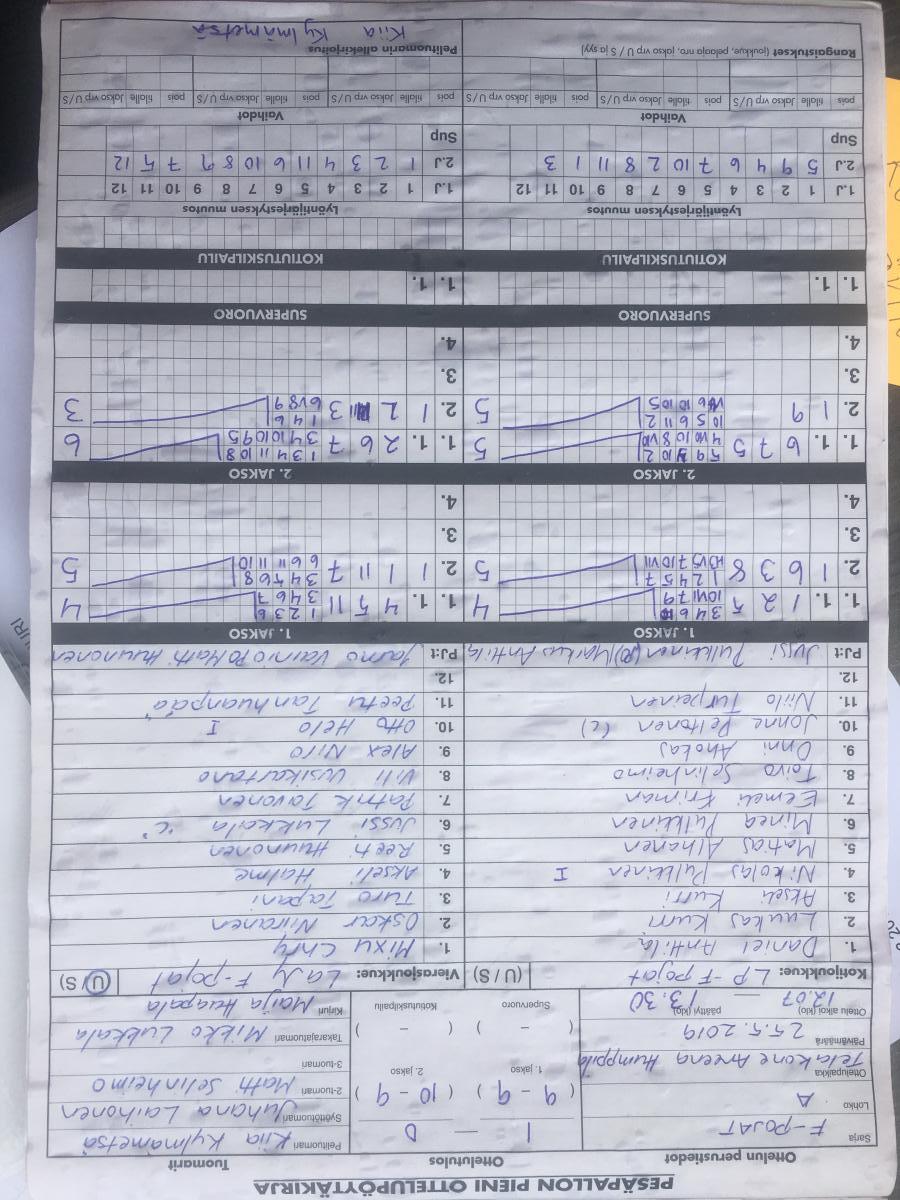 PESÄPALLON PIENI OTTELUPÖYTÄKIRJA
Ottelun perustiedot
Ottelutulos
Tuomarit
Sarja F-POJAT
1 — 0
Pelituomari Kiia Kylmämetsä
Lohko A
( 9 - 9 ) ( 10 - 9 )
Syöttötuomari Juhana Laihonen
Ottelupaikka Jetakone Areena Humppila
1. jakso 2. jakso
2-tuomari Matti Selinheimo
Päivämäärä 25.5.2019
3-tuomari
( - ) ( - )
Takarajatuomari Mikko Lukkala
Ottelu alkoi (klo) 12.07 — päättyi (klo) 13.30
Supervuoro Kotiutuskilpailu
Kirjuri Marja Huapala
Kotijoukkue: LP F-pojat (U / S)
Vierasjoukkue: LaJy F-pojat (U / S)
1. Daniel Anttila
1. Mixu Chty
2. Luukas Kurri
2. Oskar Niiranen
3. Akseli Kurri
3. Turo Tapani
4. Nikolas Pulkkinen I
4. Akseli Halme
5. Matias Alhanen
5. Reeti Huunonen
6. Minea Pulkkinen
6. Jussi Lukkala "c"
7. Eemeli Friman
7. Patrik Tavonen
8. Toivo Selinheimo
8. Vili Uusikartano
9. Onni Ahokas
9. Alex Niro
10. Johne Peltonen (c)
10. Otto Helo I
11. Niilo Turpeinen
11. Peetu Tanhuanpää
12.
12.
PJ:t Jussi Pulkkinen (PO) Markus Anttila
PJ:t Jarno Vainio PO Matti Huunonen
1. JAKSO
1. JAKSO
1. 1. 1 2 5 3 4 6 10 VII 7 9 4
1. 1. 4 5 11 1 2 3 6 3 4 6 7 4
2. 1 6 3 8 1 2 4 5 7 5
2. 1 1 11 7 3 4 6 8 6 6 11 11 10 5
3.
3.
4.
4.
2. JAKSO
2. JAKSO
1. 1. 6 7 5 5
1. 1. 2 6 7 1 3 4 11 10 8 3 4 10 10 9 5 6
2. 1 9 10 5 6 11 2 5
2. 1 2 11 3 1 4 6 6 V8 9 3
3.
3.
4.
4.
SUPERVUORO
SUPERVUORO
1. 1.
1. 1.
KOTIUTUSKILPAILU
KOTIUTUSKILPAILU
Lyöntijärjestyksen muutos
Lyöntijärjestyksen muutos
1.J 1 2 3 4 5 6 7 8 9 10 11 12
1.J 1 2 3 4 5 6 7 8 9 10 11 12
2.J 5 9 4 6 7 10 2 8 11 1 3
2.J 1 2 3 4 11 6 10 8 9 7 5 12
Sup
Sup
Vaihdot
Vaihdot
pois tilalle Jakso vrp U / S pois tilalle Jakso vrp U / S pois tilalle Jakso vrp U / S
pois tilalle Jakso vrp U / S pois tilalle Jakso vrp U / S
Rangaistukset (joukkue, pelaaja nro, jakso vrp S / U ja syy)
Pelituomarin allekirjoitus
Kiia Kylmämetsä